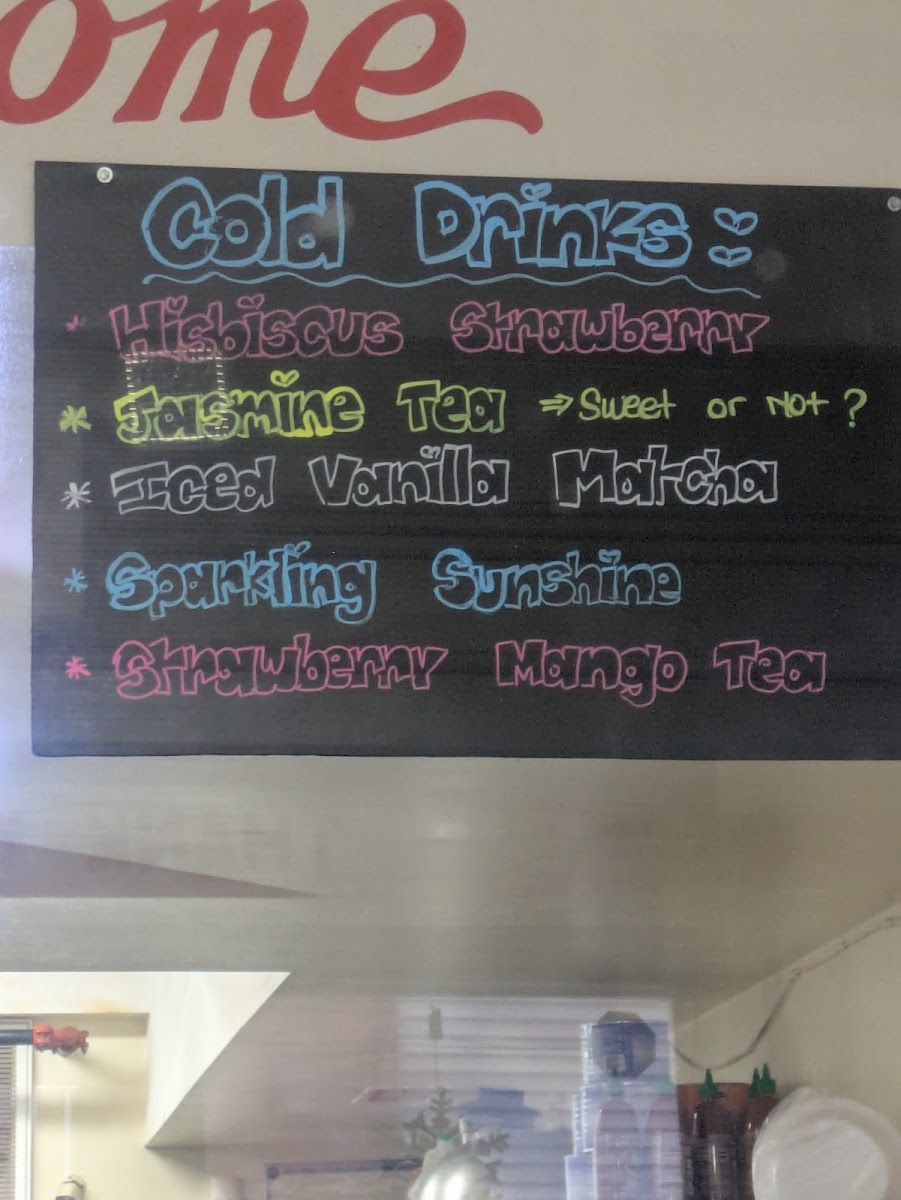 ome
Cold Drinks:
* Hisbiscus Strawberry
* Jasmine Tea ⇒ Sweet or Not?
* Iced Vanilla Matcha
* Sparkling Sunshine
* Strawberry Mango Tea